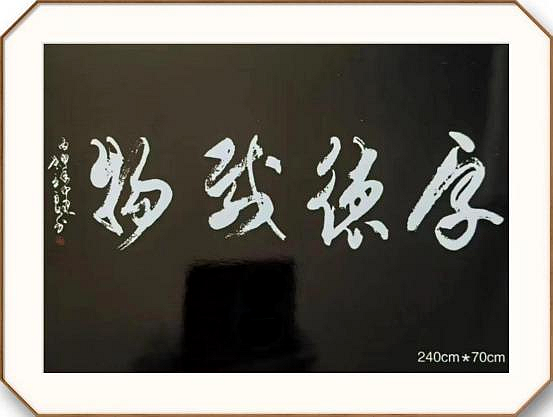 厚德载物
240cm*70cm